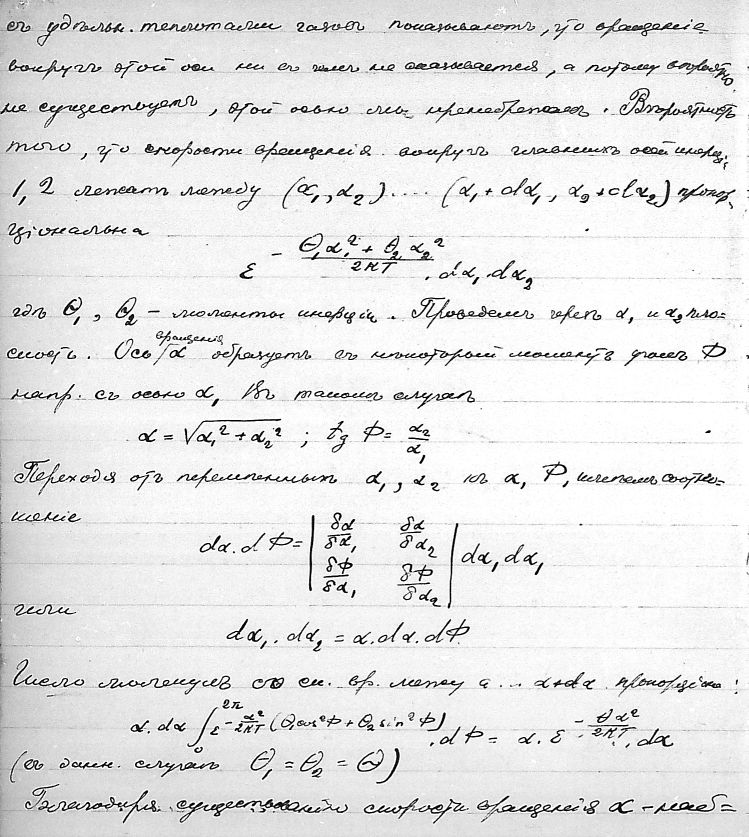 съ удѣльн. теплотами газовъ показываютъ, что вращеніе
вокругъ этой оси ни съ чемъ не связывается, а потому вѣроятно
не существуетъ, этой осью мы пренебрежемъ. Вѣроятность
того, что скорости вращенія вокругъ главныхъ осей инерціи
1, 2 лежатъ между (α₁, α₂) .... (α₁ + dα₁, α₂ + dα₂) пропор-
ціональна
ε^{-\frac{Θ₁α₁² + Θ₂α₂²}{2KT}} . dα₁ dα₂
гдѣ Θ₁, Θ₂ – моменты инерціи. Проведемъ черезъ α₁ и α₂ пло-
скость. Ось вращенія α образуетъ въ некоторый моментъ уголъ Φ
напр. съ осью α₁ Въ такомъ случаѣ
α = √(α₁² + α₂²) ; tg Φ = α₂/α₁
Переходя отъ перемѣнныхъ α₁, α₂ къ α, Φ, имѣемъ соотно-
шеніе
dα . d Φ = | δα/δα₁ δα/δα₂ ; δΦ/δα₁ δΦ/δα₂ | dα₁ dα₁
или
dα₁ . dα₂ = α . dα . dΦ
Число молекулъ со ск. вр. между α ... α + dα пропорціон.:
α . dα ∫₀^{2π} ε^{-\frac{α²}{2KT}(Θ₁cos²Φ + Θ₂sin²Φ)} . dΦ = α . ε^{-\frac{Θα²}{2KT}} . dα
(въ данн. случаѣ Θ₁ = Θ₂ = Θ)
Благодаря существованію скорости вращенія α – наб=